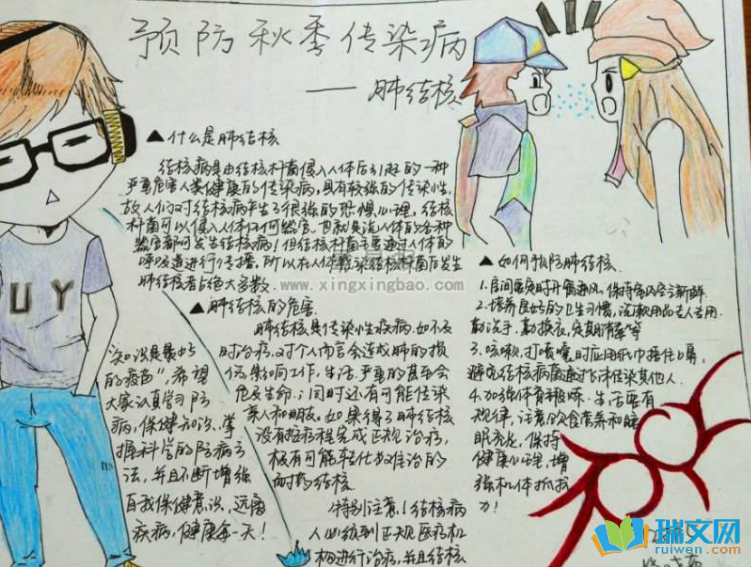 预防秋季传染病
——肺结核
▲什么是肺结核
结核病是由结核杆菌侵入人体后引起的一种
严重危害人类健康的传染病,具有较强的传染性,
故人们对结核病产生了很强的恐惧心理,结核
杆菌可以侵入人体任何器官。也就是说人体的各种
器官都可发生结核病!但结核杆菌主要通过人体的
呼吸道进行传播,所以在人体感染结核杆菌后发生
肺结核者占绝大多数
www.xingxingbao.com
▲肺结核的危害
肺结核是传染性疾病,如不及
时治疗,对个人而言会造成肺的损
伤,影响工作、生活,严重的甚至会
危及生命;同时还有可能传染
亲人和朋友。如果得了肺结核
没有按疗程完成正规治疗,
极有可能转化为难治的
耐药结核
特别注意!结核病
人必须到正规医疗机
构进行治疗,并且结核
▲如何预防肺结核
1.房间要定时开窗通风,保持室内空气新鲜
2.培养良好的卫生习惯,洗漱用品专人专用
勤洗手,勤换衣,定期消毒等
3.咳嗽,打喷嚏时应用纸巾捂住口鼻,
避免结核病菌通过飞沫传染其他人.
4.加强体育锻炼.生活要有
规律,注意饮食营养和睡
眠充足,保持
健康心理,增
强机体抵抗
力!
"知识是最好
的疫苗",希望
大家认真学习防
病,保健知识,掌
握科学的防病方
法,并且不断增强
自我保健意识,远离
疾病,健康每一天!
UY
瑞文网
ruiwen.com